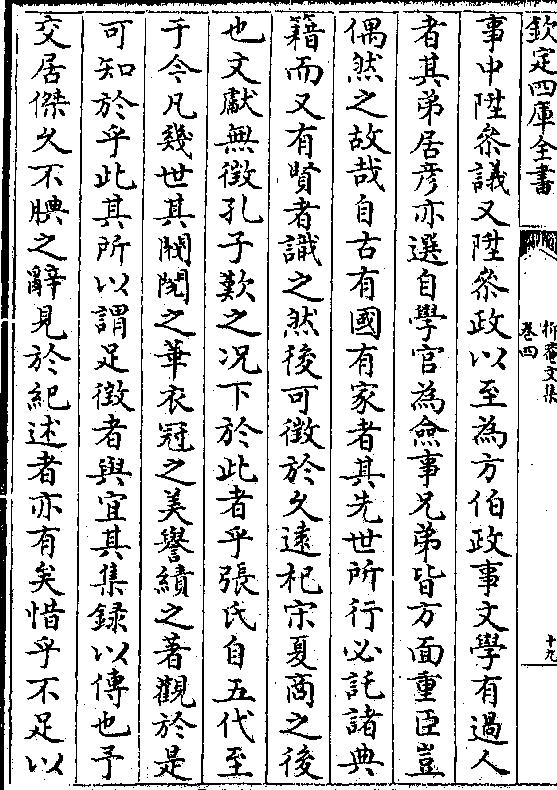 欽定四庫全書
折菴文集
卷四
十九
事中陞叅議又陞叅政以至為方伯政事文學有過人
者其弟居彦亦選自學官為僉事兄弟皆方面重臣豈
偶然之故哉自古有國有家者其先世所行必託諸典
籍而又有賢者識之然後可徴於久遠杞宋夏商之後
也文獻無徴孔子歎之况下於此者乎張氏自五代至
于今凡幾世其閥閲之華衣冠之美譽績之著觀於是
可知於乎此其所以謂足徴者與宜其集録以傳也予
交居傑久不腆之辭見於紀述者亦有矣惜乎不足以